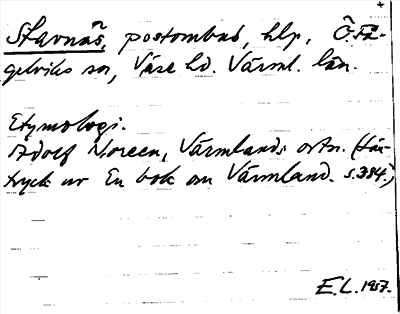 Stavnäs, postombud, hlp, Ö. Få-
gelviks sn, Väse hd. Värml. län.
Etymologi.
Adolf Noreen, Värmlands ortn. (Sär-
tryck ur En bok om Värmland. s. 384.)
E.L. 1957.